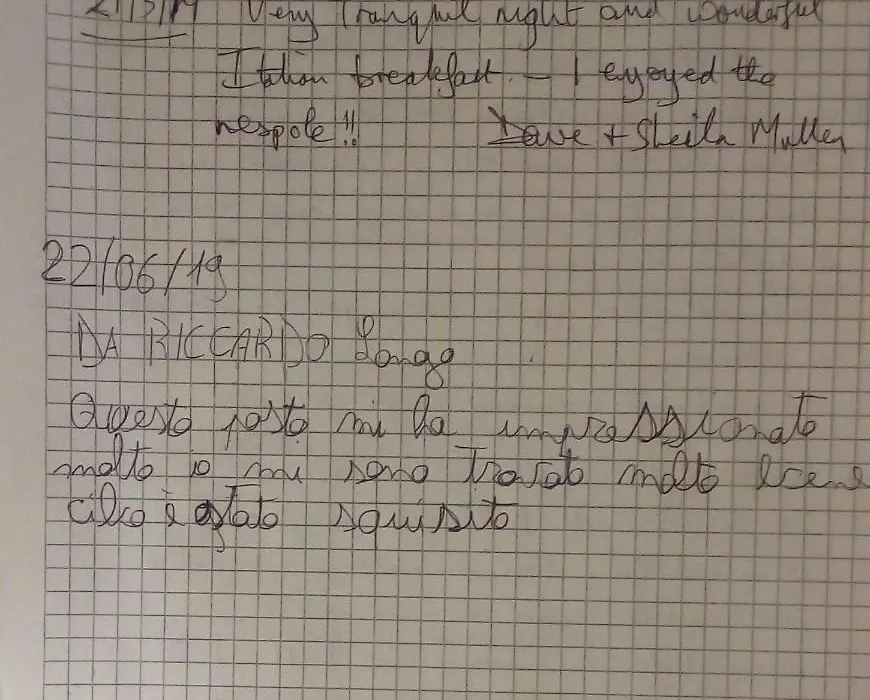 21/5/19 Very Tranquil night and wonderful
Italian breakfast. – I enjoyed the
nespole!! Dave + Sheila Mullen
22/06/19
DA RICCARDO Longo
Questo posto mi ha impressionato
molto io mi sono trovato molto bene
cibo è stato squisito